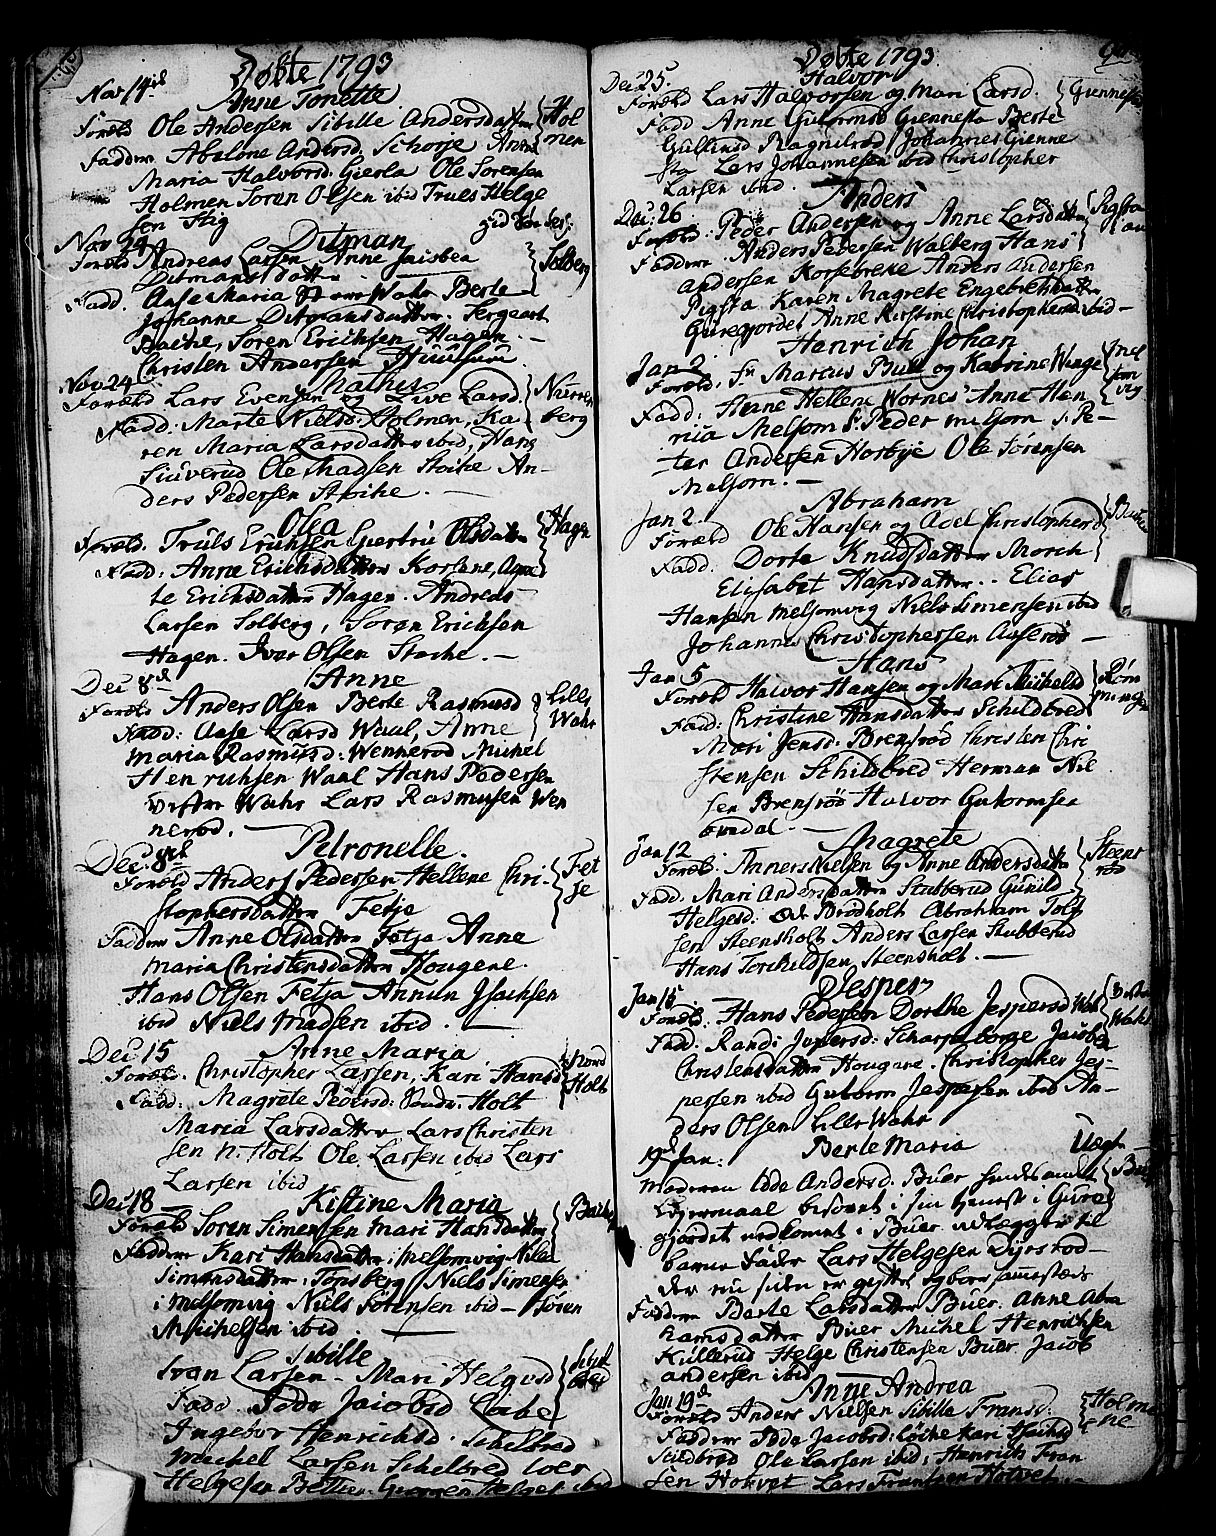 Døbte 1793
Nov 14de
Anne Tonette
Foræld Ole Andersen Sibille Andersdatter Holmen
Faddere Abelone Andersd. Anne
Maria Halvorsd. Gierla Ole Sørensen
Holmen Søren Olsen ibid Truls Helge
sen Hig
Nov 24 Ditman
Foræld Andreas Larsen Anne Jaisbea Solberg
Ditmansdatter
Fadd. Aase Maria Wahr Berte
Johanne Ditmansdatter. Sergeant
Bache, Søren Erichsen Hagen. -
Christen Andersen Huusum
Nov 24 Mathis
Foræld Lars Evensen og Live Larsd. Nurrenberg
Fadd. Marte Nielsd. Holmen, Ka
ren Maria Larsdatter ibid, Hans
Siuverud Ole Madsen Stoike An-
ders Pedersen Stoike. -
Olea
Foræld. Truls Erichsen Giertru Olsdatter Hagen
Fadd: Anne Erichsdatter Korsene, Aga
te Erichsdatter Hagen. Andreas
Larsen Solberg, Sørøn Erichsen
Hagen. Iver Olsen Stoike. -
Dec 8d Anne
Foræld Anders Olsen Berte Rasmusd Lille Wahr
Fadd: Aase Larsd Waal, Anne
Maria Rasmusd: Wennerød Michel
Henrichsen Waal Hans Pedersen
Westre Wahr Lars Rasmusen Wen
nerød. -
Dec 8de Petronelle.
Foræld Anders Pedersen Hellene Chri- Fetje
stophersdatter Fetje
Faddere Anne Olsdatter Fetja Anne
Maria Christensdatter Hougene.
Hans Olsen Fetja Annun Isachsen
ibid Niels Madsen ibid. -
Dec 15 Anne Maria
Foræld. Christopher Larsen, Kari Hansd Nord Holt
Fadd: Magrete Pedersd: Holt
Maria Larsdatter Lars Christen
sen N. Holt Ole Larsen ibid Lars
Larsen ibid
Dec 18 Kistine Maria
Foræld Søren Simensen Mari Hansdatter Bache
Faddere Kari Hansdatter i Melsomvig Nille
Simensdatter: Tønsberg Niels Simensen
i Melsomvig Niels Sørensen ibid - Søren
Michelsen ibid -
Sibille
Ivan Larsen - Mari Helgesd
Fadd. Jacobsd
Ingebor Henrichsd. Schelbred
Michel Larsen Schelbred Iver
Helgesen

Døbte 1793
Dec 25. Halvor
Foræld Lars Halvorsen og Mari Larsd. Giennestad
Fadd Anne Gulormsd Giennesta Berte
Gullimsd Johannes Gienne
sta Lars Johannesen ibid Christopher
Larsen ibid.
Anders
Dec: 26
Foræld: Peder Andersen og Anne Larsdatter
Faddere. Anders Pedersen Walberg Hans
Andersen Korsebreke Anders Andersen
Pigsta Karen Magrete Engebretsdatter
Guregjordet Anne Kirstine Christophersd ibid -
Henrich Johan
Jan 2
Foræld: Sr Marcus Bull og Katrine Wenge Melsomvig
Fadd: Anne Hellene Wornes Anne Hen
ricia Melsom S: Peder Melsom S. Pe-
ter Andersen Horbye Ole Sørensen
Melsom. -
Abraham
Jan 2.
Foræld Ole Hansen og Adel Christophersd
Fadd. Dorte Knudsdatter Morch
Elisabet Hansdatter. Elias
Hansen Melsomvig Niels Simensen ibid
Johannes Christophersen Aaserød -
Jan 5 Hans
Foræld Halvor Hansen og Mari Michelsd
Fadd: Christine Hansdatter Schildbred
Mari Jensd. Brensrød Christen Chri
stensen Schildbred Herman Niel
sen Brensrød Halvor Gutormsen
-
Jan 12 Magrete
Foræld. Anners Nielsen og Anne Andersdatter Steensrød
Fadd. Mari Andersdatter Stubberud Gunild
Helgesd. Brodholt Abraham Tolf
sen Steensholt Anders Larsen Stubberud
Hans Torchildsen Steensholt. -
Jesper
Jan 15
Foræld. Hans Pedersen Dorthe Jespersd Wahr
Fadd. Randi Jespersd: Scharpeborge Jacobea
Christensdatter Hougene. Christopher Jes-
persen ibid Gutorm Jespersen ibid An-
ders Olsen Lille Wahr
19d Jan: Berte Maria Uægt
Moderen Edde Andersd. Buer hendes andet Buer
Leiermaal besovet i sin tjeneste i Gure
gjordet nedkomet i Buer udlægger til
barne Fader Lars Helgesen Dyrsrod
der nu siden er gyftet og boer sammesteds
Faddere Berte Larsdatter Buer. Anne Abra
hamsdatter Buer Michel Henrichsen
Kullerud Helge Christensen Buer Jacob
Andersen ibid
Jan 19d Anne Andrea
Foræld Anders Nielsen Sibille Fransd. Holmene
Faddere Edde Jacobsd: Løcke Kari
Scildbred Ole Larsen ibid, Henrich Fran
sen Hotvet Lars Frantsen Hotvet -